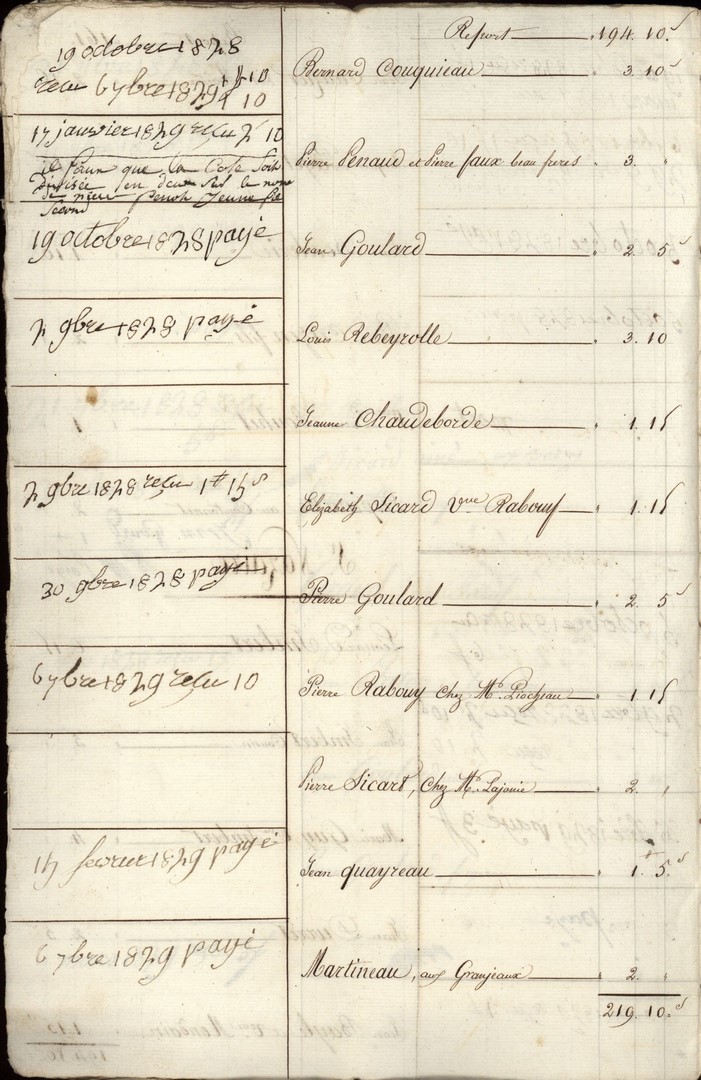 Report 194. 10.s
19 octobre 1828
recu 6 7bre 1829
10
10
Bernard Couquieau 3. 10s
17 janvier 1829 recu 2 10
il faun que la Cote soit
divisée en deux sus le nom
de pierre jeune
second
Pierre Penaud et Pierre faux beau freres 3 "
19 octobre 1828 payé
Jean Goulard 2. 5s
2 9bre 1828 payé
Louis Rebeyrolle 3. 10
Jeanne Chaudeborde 1. 15
2 9bre 1828 recu 1# 15s
Elizabeth Sicard Vve Rabouy 1. 15
30 9bre 1828 payé
Pierre Goulard 2. 5s
6 7bre 1829 recu 10
Pierre Rabouy chez Mr. 1. 15
Pierre Sicart, Chez Mr. Lajonie 2. "
15 fevrier 1829 payé
Jean quayreau 1.# 5.s
6 7bre 1829 payé
Martineau, aux Granjeaux 2. "
219. 10.s